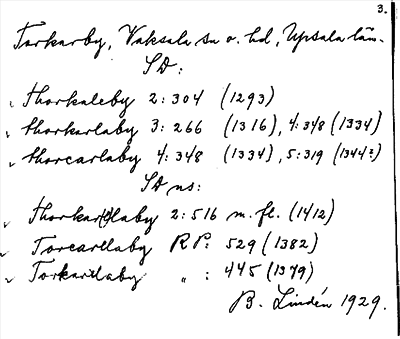 3.
Torkarby, Vaksala sn o. hd, Upsala län.
SD:
thorkaleby 2:304 (1293)
thorkarlaby 3:266 (1316), 4:348 (1334)
thorcarlaby 4:348 (1334), 5:319 (1344?)
SD ns:
thorkar(l)laby 2:516 m. fl. (1412)
Torcarllaby RP: 529 (1382)
Torkarllaby " : 445 (1379)
B. Lindén 1929.